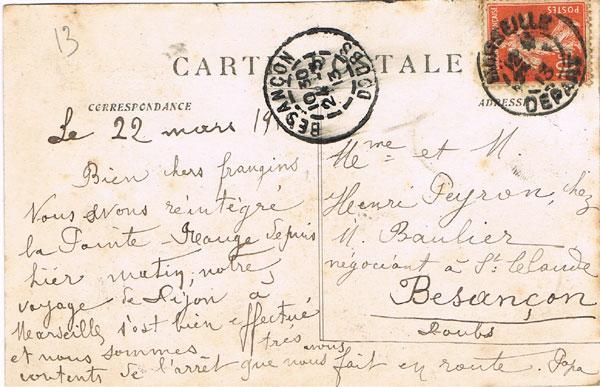 13
CARTE POSTALE
CORRESPONDANCE
ADRESSE
BESANÇON
10 30
23 - 3
DOUBS
MARSEILLE
DEPART
Le 22 mars 19
Bien chers frangins
Nous avons réintégré
la Pointe-Rouge depuis
hier matin, notre
voyage de Dijon à
Marseille s'est bien effectué
et nous sommes très
contents de l'arrêt que nous vous
fait en route. Papa
Mme et M.
Henri Peyron, chez
M. Baulier
négociant à St Claude
Besançon
Doubs